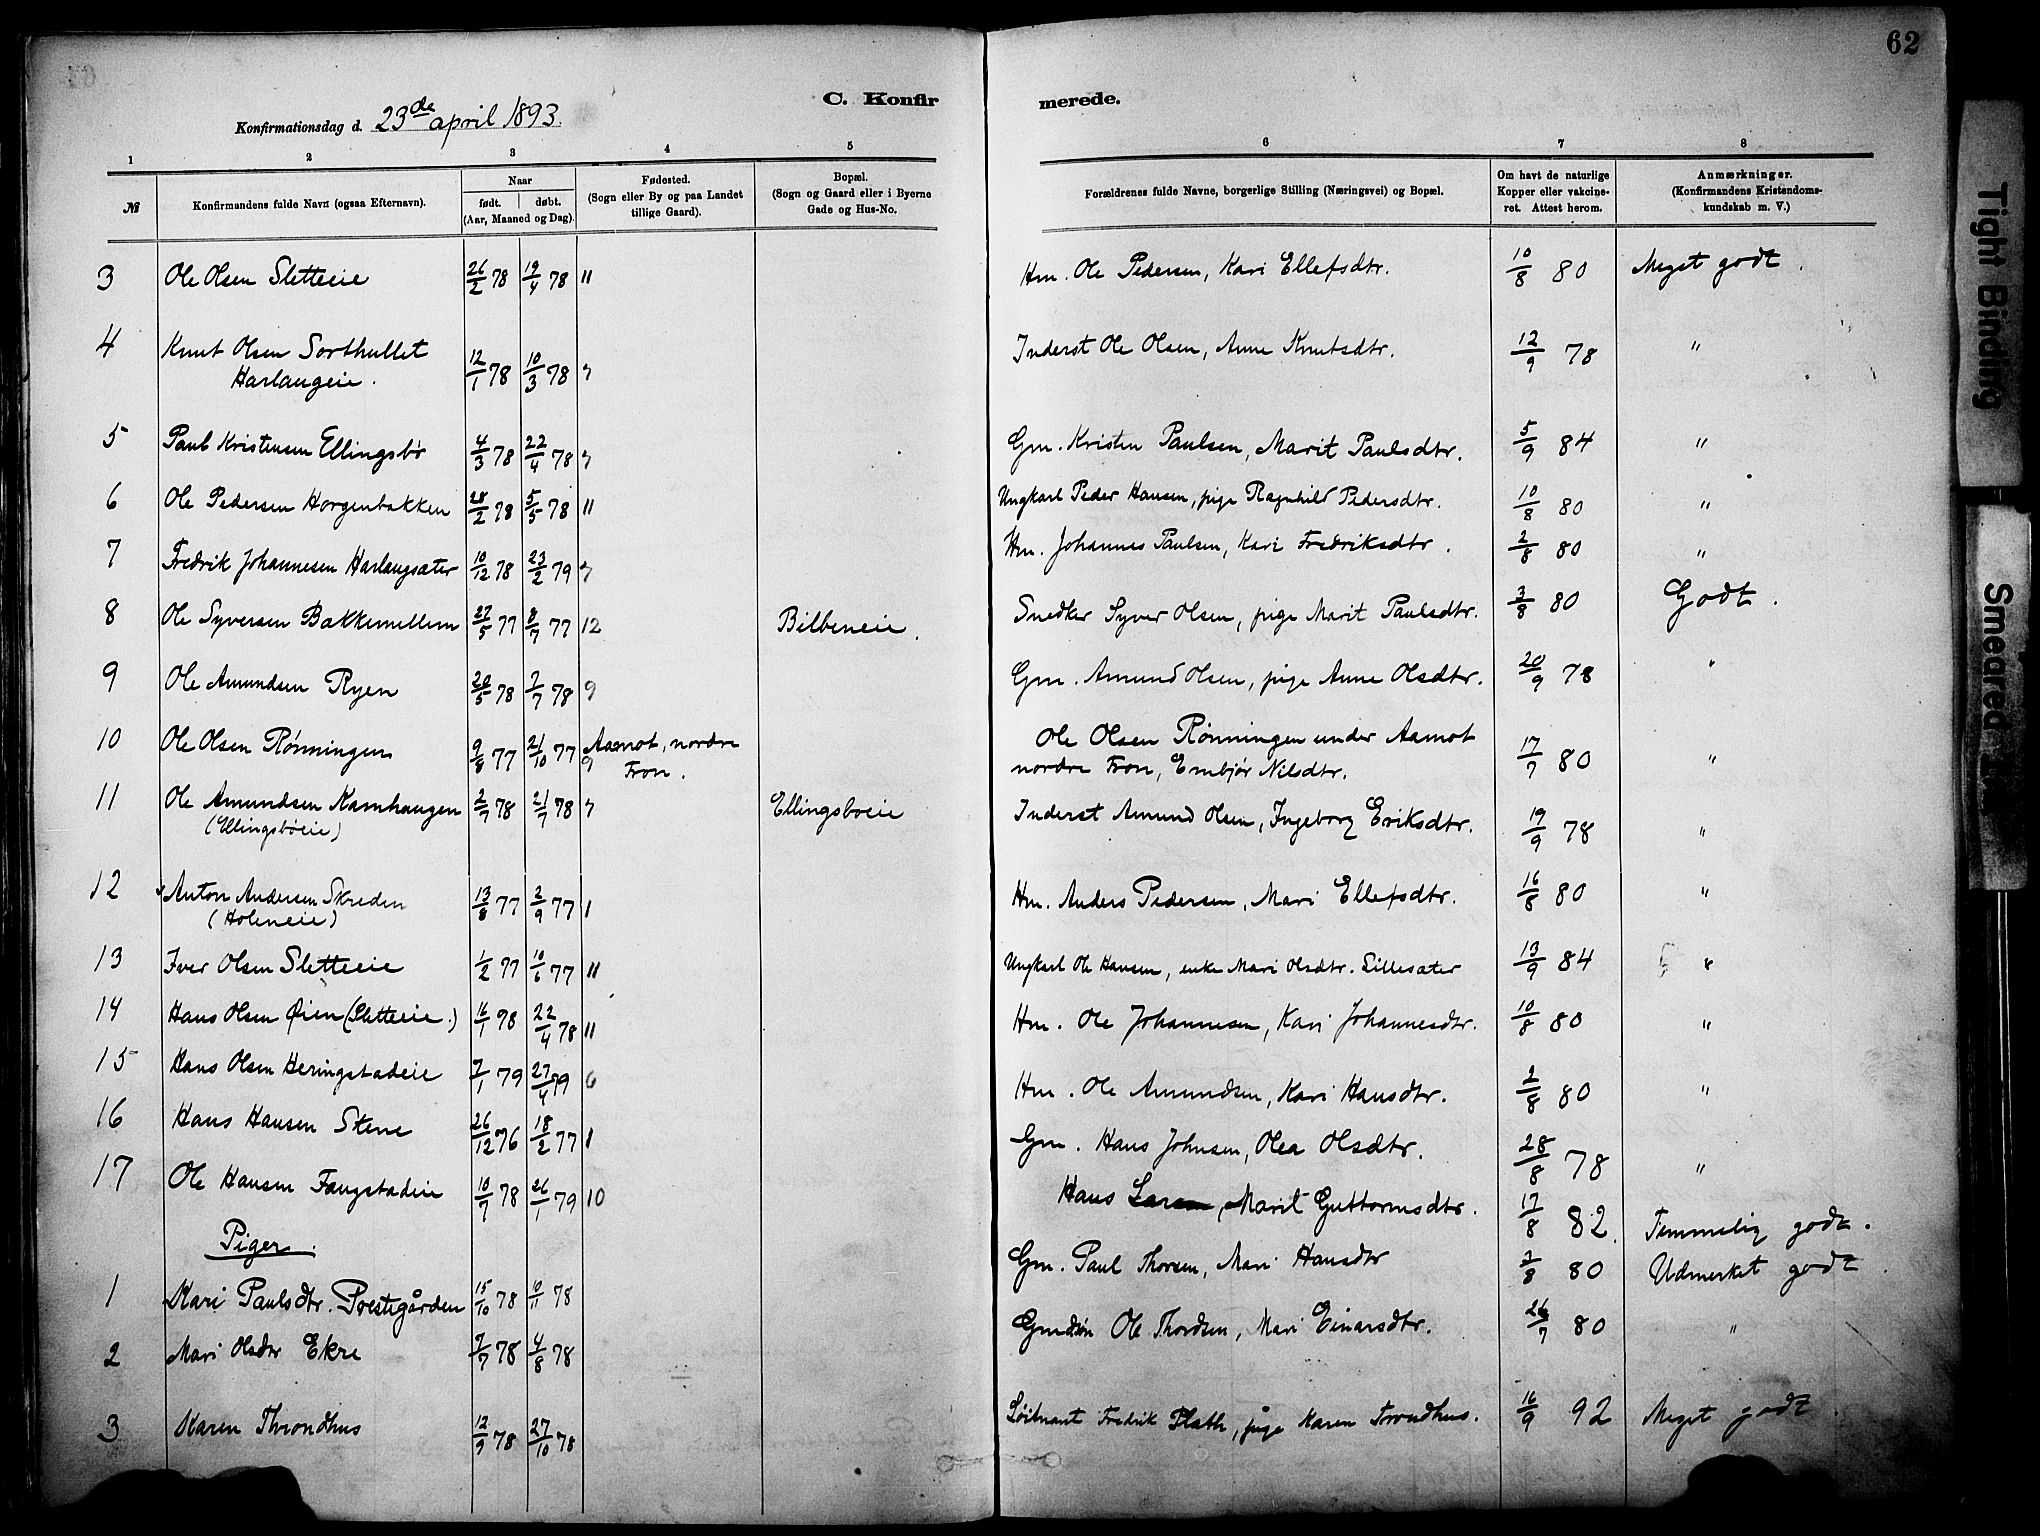 62
C. Konfirmerede.
Konfirmationsdag d. 23de april 1893.
1 2 3 4 5 6 7 8
№ Konfirmandens fulde Navn (ogsaa Efternavn). Naar født. døbt. (Aar, Maaned og Dag). Fødested. (Sogn eller By og paa Landet tillige Gaard). Bopæl. (Sogn og Gaard eller i Byerne Gade og Hus-No. Forældrenes fulde Navne, borgerlige Stilling (Næringsvei) og Bopæl. Om havt de naturlige Kopper eller vakcineret. Attest herom. Anmærkninger. (Konfirmandens Kristendomskundskab m. V.)
3 Ole Olsen Sletteeie 26/2 78 19/4 78 11 Hm. Ole Pedersen, Kari Ellefsdtr. 10/8 80 Meget godt.
4 Knut Olsen Sorthullet 12/1 78 10/3 78 7 Inderst Ole Olsen, Anne Knutsdtr. 12/9 78 "
Harlaugeie.
5 Paul Kristensen Ellingsbø 4/3 78 22/4 78 7 Gm. Kristen Paulsen, Marit Paulsdtr. 5/9 84 "
6 Ole Pedersen Horgenbakken 28/2 78 5/5 78 11 Ungkarl Peder Hansen, pige Ragnhild Pedersdtr. 10/8 80 "
7 Fredrik Johannesen Harlaugsæter 10/12 78 23/2 79 7 Hm. Johannes Paulsen, Kari Fredriksdtr. 2/8 80 "
8 Ole Syversen Bakkemellem 27/5 77 8/7 77 12 Bilbeneie. Snedker Syver Olsen, pige Marit Paulsdtr. 3/8 80 Godt.
9 Ole Amundsen Ryen 20/5 78 7/7 78 9 Gm. Amund Olsen, pige Anne Olsdtr. 20/9 78 "
10 Ole Olsen Rønningen 9/8 77 21/10 77 Aamot, nordre Ole Olsen Rønningen under Aamot 17/7 80 "
9 Fron. nordre Fron, Embjør Nilsdtr.
11 Ole Amundsen Kamhaugen 2/7 78 21/7 78 7 Ellingsboeie Inderst Amund Olsen, Ingeborg Eriksdtr. 19/9 78 "
(Ellingsbøeie)
12 Anton Andersen Skreden 13/8 77 2/9 77 1 Hm. Anders Pedersen, Mari Ellefsdtr. 16/8 80 "
(Holeneie)
13 Iver Olsen Sletteeie 1/2 77 10/6 77 11 Ungkarl Ole Hansen, enke Mari Olsdtr. Lillesæter 13/9 84 "
14 Hans Olsen Øien (Sletteeie.) 16/1 78 22/4 78 11 Hm. Ole Johannesen, Kari Johannesdtr. 10/8 80 "
15 Hans Olsen Heringstadeie 7/1 79 27/4 79 6 Hm. Ole Amundsen, Kari Hansdtr. 2/8 80 "
16 Hans Hansen Stene 26/12 76 18/2 77 1 Gm. Hans Johnsen, Olea Olsdtr. 28/8 78 "
17 Ole Hansen Faugstadeie 10/7 78 26/1 79 10 Hans Larsen, Marit Guttormsdtr. 17/8 82 Temmelig godt.
Piger.
1 Kari Paulsdtr. Prestegården 15/10 78 78 Gm. Paul Thorsen, Mari Hansdtr 7/8 80 Udmerket godt
2 Mari Olsdtr Ekre 7/7 78 4/8 78 Gmdsøn Ole Thordsen, Mari Einarsdtr. 26/7 80 "
3 Karen Throndhus 12/9 78 27/10 78 Løitnant Fredrik Plath, pige Karen Trondhus. 16/9 92 Meget godt.
Tight Binding
Smeared